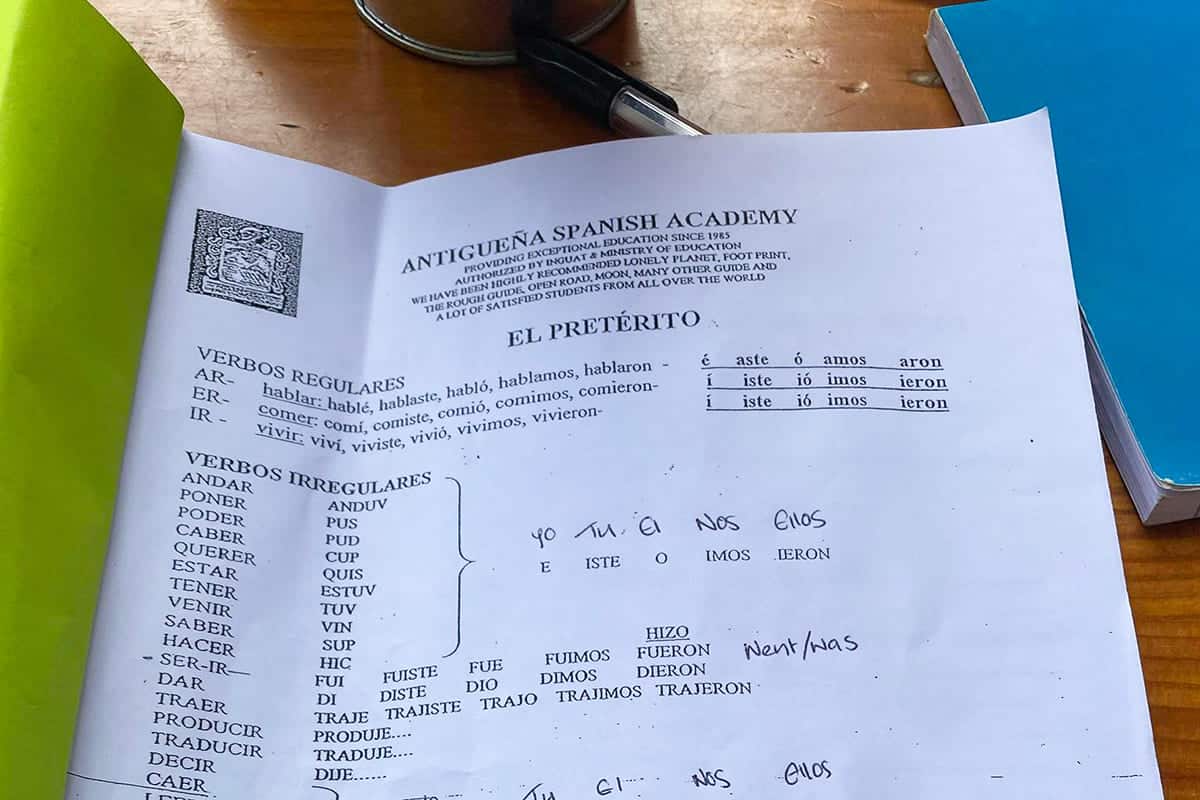 ANTIGUEÑA SPANISH ACADEMY
PROVIDING EXCEPTIONAL EDUCATION SINCE 1985
AUTHORIZED BY INGUAT & MINISTRY OF EDUCATION
WE HAVE BEEN HIGHLY RECOMMENDED LONELY PLANET, FOOT PRINT,
THE ROUGH GUIDE, OPEN ROAD, MOON, MANY OTHER GUIDE AND
A LOT OF SATISFIED STUDENTS FROM ALL OVER THE WORLD
EL PRETÉRITO
VERBOS REGULARES
AR- hablar: hablé, hablaste, habló, hablamos, hablaron - é aste ó amos aron
ER- comer: comí, comiste, comió, comimos, comieron- í iste ió imos ieron
IR - vivir: viví, viviste, vivió, vivimos, vivieron- í iste ió imos ieron
VERBOS IRREGULARES
ANDAR ANDUV
PONER PUS
PODER PUD
CABER CUP
QUERER QUIS
ESTAR ESTUV
TENER TUV
VENIR VIN
SABER SUP
HACER HIC
yo Tu El Nos Ellos
E ISTE O IMOS IERON
HIZO
- SER-IR— FUI FUISTE FUE FUIMOS FUERON Went/was
DAR DI DISTE DIO DIMOS DIERON
TRAER TRAJE TRAJISTE TRAJO TRAJIMOS TRAJERON
PRODUCIR PRODUJE....
TRADUCIR TRADUJE....
DECIR DIJE......
CAER
Tu El Nos Ellos